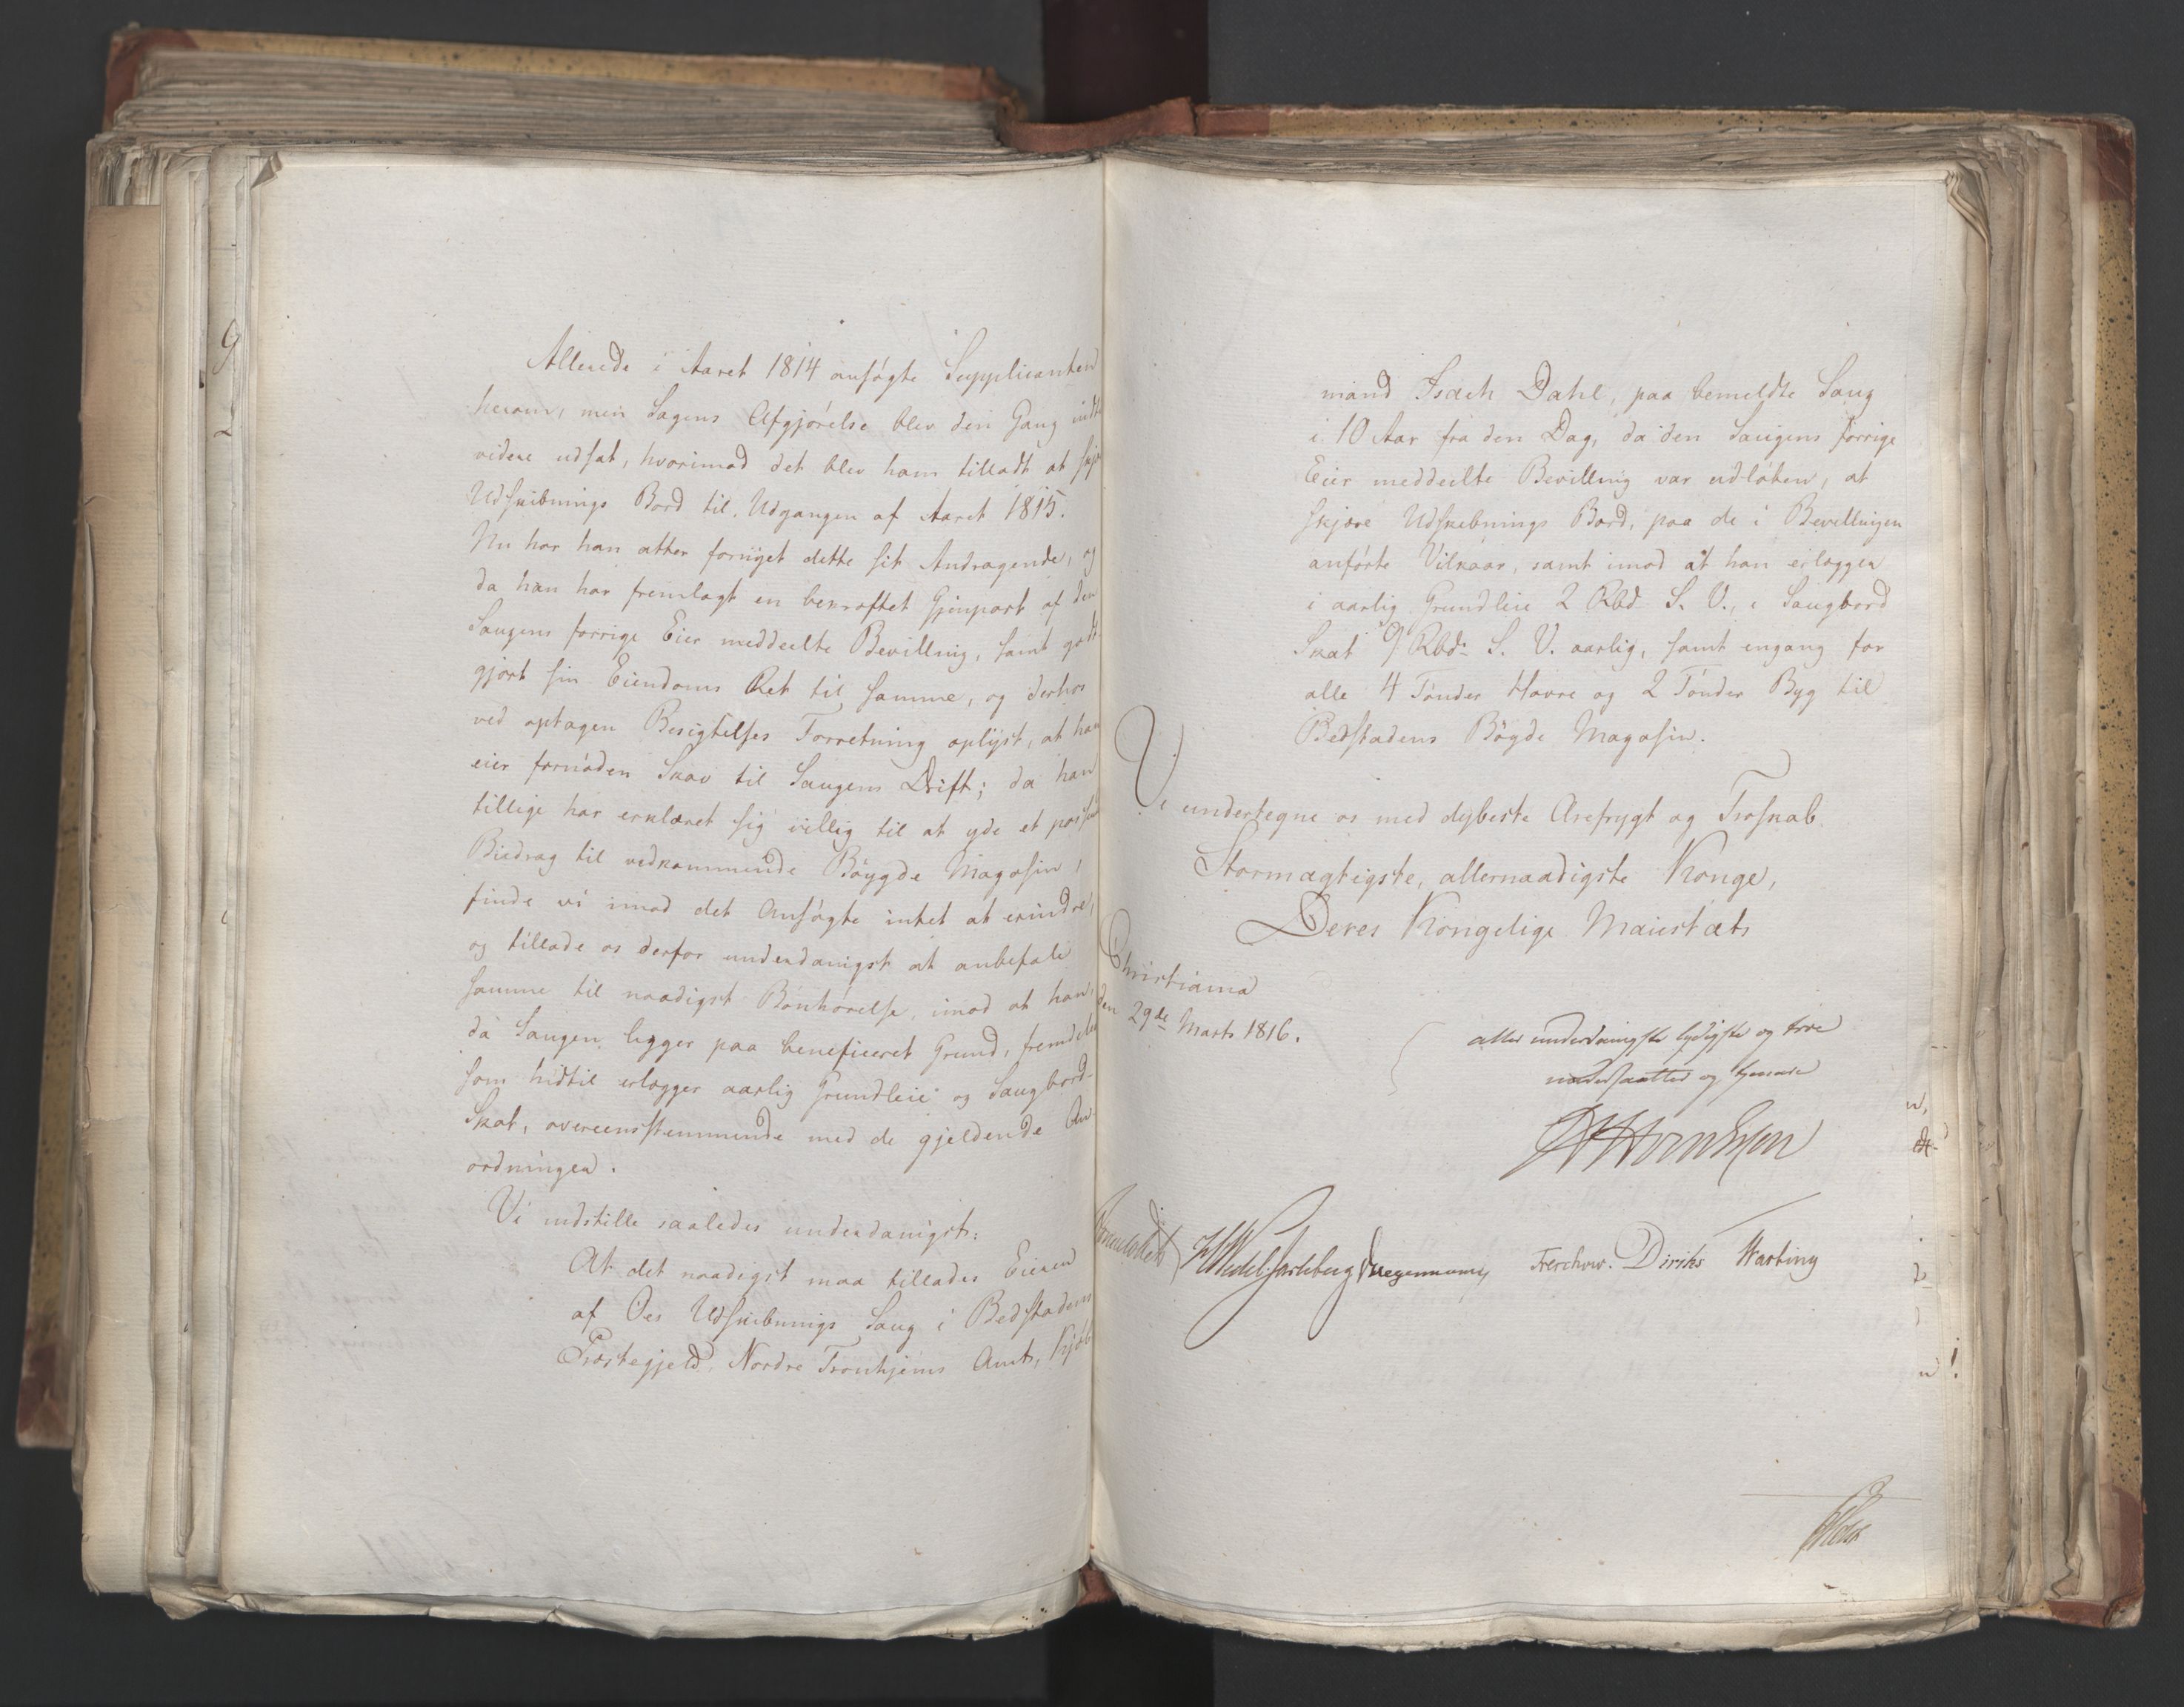 Allerede i Aaret 1814 ansögte Supplicanten
herom, men Sagens Afgjörelse blev den Gang indtil
videre udsat, hvorimod det blev ham tilladt at skjære
Udskibnings Bord til Udgangen af Aaret 1815.
Nu har han atter fornyet dette sit Andragende, og
da han har fremlagt en bekræftet Gjenpart af den
Saugens forrige Eier meddeelte Bevilling, samt godt-
gjort sin Eiendoms Ret til samme, og derhos
ved optagen Besigtelses Forretning oplyst, at han
eier fornöden Skov til Saugens Drift; da han
tillige har erklæret sig villig til at yde et passende
Biedrag til vedkommende Böygde Magasin,
finde vi imod det Ansögte intet at erindre,
og tillade os derfor underdanigst at anbefale
samme til naadigst Bönhörelse, imod at han,
da Saugen ligger paa beneficeret Grund, fremdeles
som hidtil erlægger aarlig Grundleie og Saugbord-
Skat, overeensstemmende med de gjeldende An-
ordninger.
Vi indstille saaledes underdanigst:
At det naadigst maa tillades Eieren
af Oes Udskibnings Saug i Bedstadens
Præstegjeld, Nordre Tronhjems Amt, Kjöb-
mand Isach Dahl, paa bemeldte Saug
i 10 Aar fra den Dag, da den Saugens forrige
Eier meddeelte Bevilling var udlöben, at
skjære Udskibnings Bord, paa de i Bevillingen
anförte Vilkaar, samt imod at han erlægger
i aarlig Grundleie 2 Rbd. S. V., i Saugbord
Skat 9 Rbd. S. V. aarlig, samt engang for
alle 4 Tönder Havre og 2 Tönder Byg til
Bedstadens Bögde Magasin.
Vi undertegne os med dybeste Ærefrygt og Troskab
Stormægtigste, allernaadigste Konge,
Deres Kongelige Maiestæts
Christiania
den 29de Marts 1816.
aller underdanigste lydigste og troe
undersaatter og tjenere
Sommerfeldt HWedel Jarlsberg Krogh Treschow. Diriks Hartvig